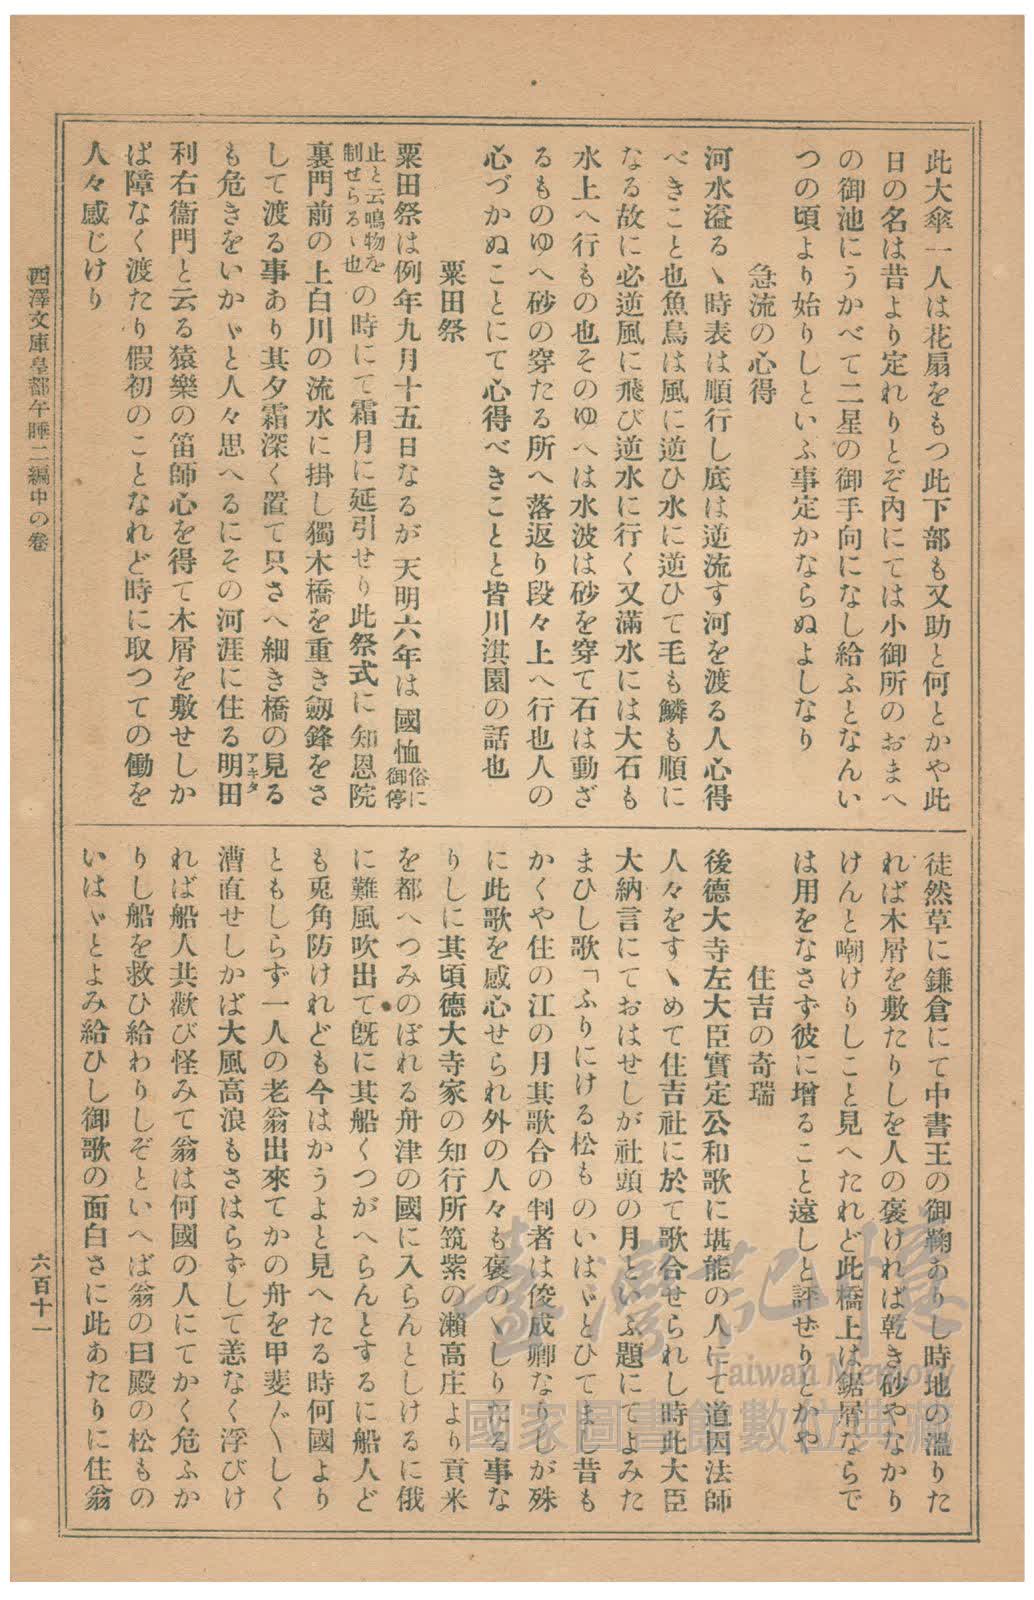 此大傘一人は花扇をもつ此下部も又助と何とかや此
日の名は昔より定れりとぞ內にては小御所のおまへ
の御池にうかべて二星の御手向になし給ふとなんい
つの頃より始りしといふ事定かならぬよしなり
急流の心得
河水溢るゝ時表は順行し底は逆流す河を渡る人心得
べきこと也魚鳥は風に逆ひ水に逆ひて毛も鱗も順に
なる故に必逆風に飛び逆水に行く又滿水には大石も
水上へ行もの也そのゆへは水波は砂を穿て石は動ざ
るものゆへ砂の穿たる所へ落返り段々上へ行也人の
心づかぬことにて心得べきことと皆川淇園の話也
粟田祭
粟田祭は例年九月十五日なるが天明六年は國恤俗に御停
止と云鳴物を制せらるゝ也の時にて霜月に延引せり此祭式に知恩院
裏門前の上白川の流水に掛し獨木橋を重き劔鋒をさ
して渡る事あり其夕霜深く置て只さへ細き橋の見る
も危きをいかゞと人々思へるにその河涯に住る明田アキタ
利右衞門と云る猿樂の笛師心を得て木屑を敷せしか
ば障なく渡たり假初のことなれど時に取つての働を
人々感じけり
徒然草に鎌倉にて中書王の御鞠ありし時地の溫りた
れば木屑を敷たりしを人の褒ければ乾き砂やなかり
けんと嘲けりしこと見へたれど此橋上は鋸屑ならで
は用をなさず彼に增ること遠しと評せりとかや
住吉の奇瑞
後德大寺左大臣實定公和歌に堪能の人にて道因法師
人々をすゝめて住吉社に於て歌合せられし時此大臣
大納言にておはせしが社頭の月といふ題にてよみた
まひし歌「ふりにける松ものいはゞとひてまし昔も
かくや住の江の月其歌合の判者は俊成卿なりしが殊
に此歌を感心せられ外の人々も褒のゝしりたる事な
りしに其頃德大寺家の知行所筑紫の瀨高庄より貢米
を都へつみのぼれる舟津の國に入らんとしけるに俄
に難風吹出て既に其船くつがへらんとするに船人ど
も兎角防けれども今はかうよと見へたる時何國より
ともしらず一人の老翁出來てかの舟を甲斐〴〵しく
漕直せしかば大風高浪もさはらずして恙なく浮びけ
れば船人共歡び怪みて翁は何國の人にてかく危ふか
りし船を救ひ給わりしぞといへば翁の曰殿の松もの
いはゞとよみ給ひし御歌の面白さに此あたりに住翁
西澤文庫皇都午睡二編中の卷
六百十一
臺灣記憶
Taiwan Memory
國家圖書館數位典藏